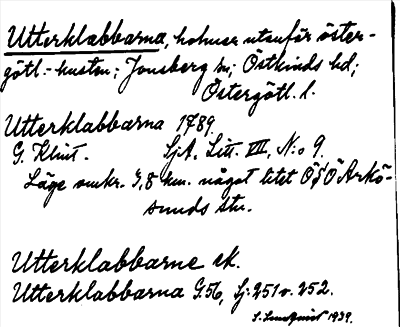 Utterklabbarna, holmar utanför öster-
götl.-kusten; Jonsberg sn; Östkinds hd;
Östergötl. l.
Utterklabbarna 1789.
G. Klint. SjA. Litt. VIII, N:o 9.
Läge omkr. 9,8 km. något litet ÖSÖ Arkö-
sunds stn.
Utterklabbarne ek.
Utterklabbarna G.56, Sj: 251 o. 252.
S. Lundqvist 1939.